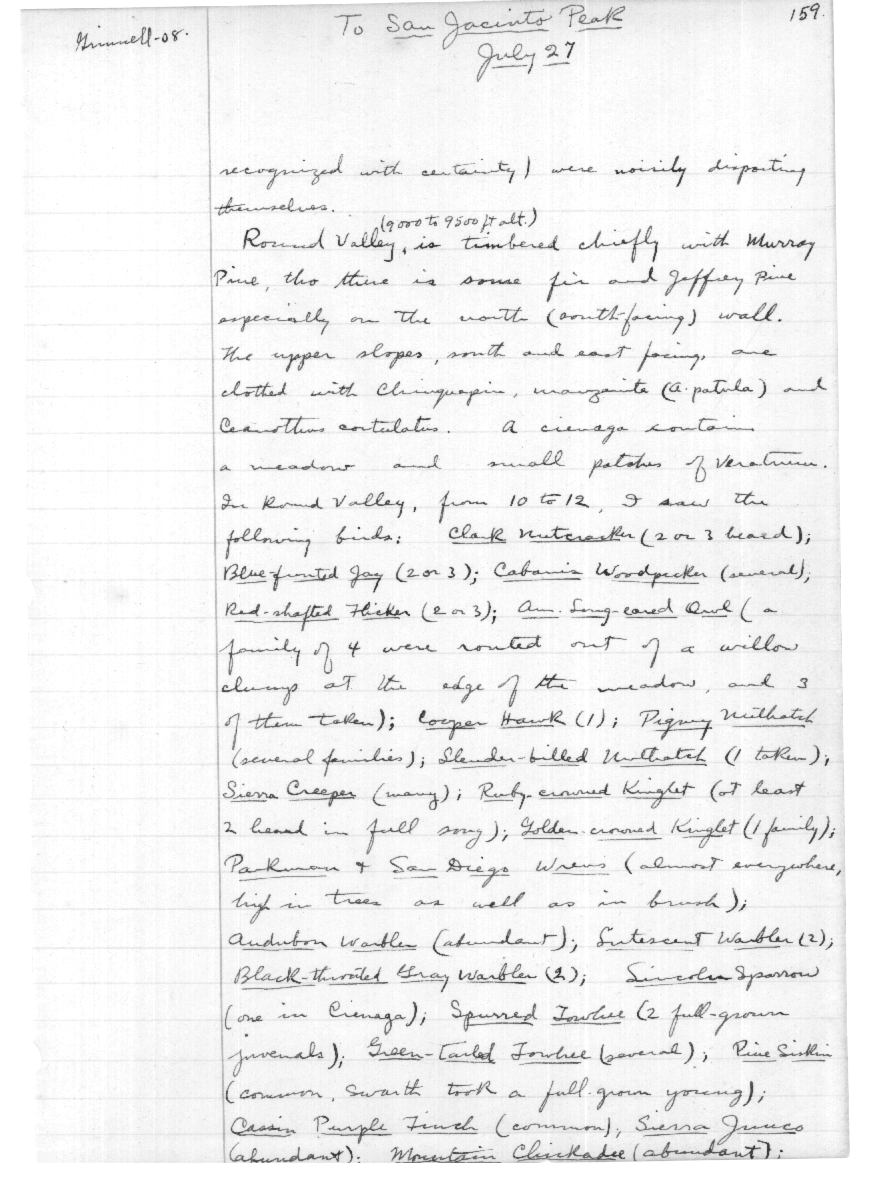 Grinnell-08.
To San Jacinto Peak
159.
July 27
recognized with certainty) were noisily disporting
themselves.
(9000 to 9500 ft alt.)
Round Valley, is timbered chiefly with Murray
Pine, tho there is some fir and Jeffrey Pine
especially on the north (south-facing) wall.
The upper slopes, south and east facing, are
clothed with Chinquapin, manzanita (A. patula) and
Ceanothus cortulatus. A cienaga contains
a meadow and small patches of Veratrum.
In Round Valley, from 10 to 12, I saw the
following birds: Clark Nutcracker (2 or 3 heard);
Blue-fronted Jay (2 or 3); Cabanis Woodpecker (several);
Red-shafted Flicker (2 or 3); Am. Long-eared Owl (a
family of 4 were routed out of a willow
clump at the edge of the meadow, and 3
of them taken); Cooper Hawk (1); Pigmy Nuthatch
(several families); Slender-billed Nuthatch (1 taken);
Sierra Creeper (many); Ruby-crowned Kinglet (at least
2 heard in full song); Golden-crowned Kinglet (1 family);
Parkman & San Diego Wrens (almost everywhere,
high in trees as well as in brush);
Audubon Warbler (abundant); Lutescent Warbler (2);
Black-throated Gray Warbler (2); Lincoln Sparrow
(one in Cienaga); Spurred Towhee (2 full-grown
juvenals); Green-tailed Towhee (several); Pine Siskin
(common, Swarth took a full-grown young);
Cassin Purple Finch (common); Sierra Junco
(abundant); Mountain Chickadee (abundant);